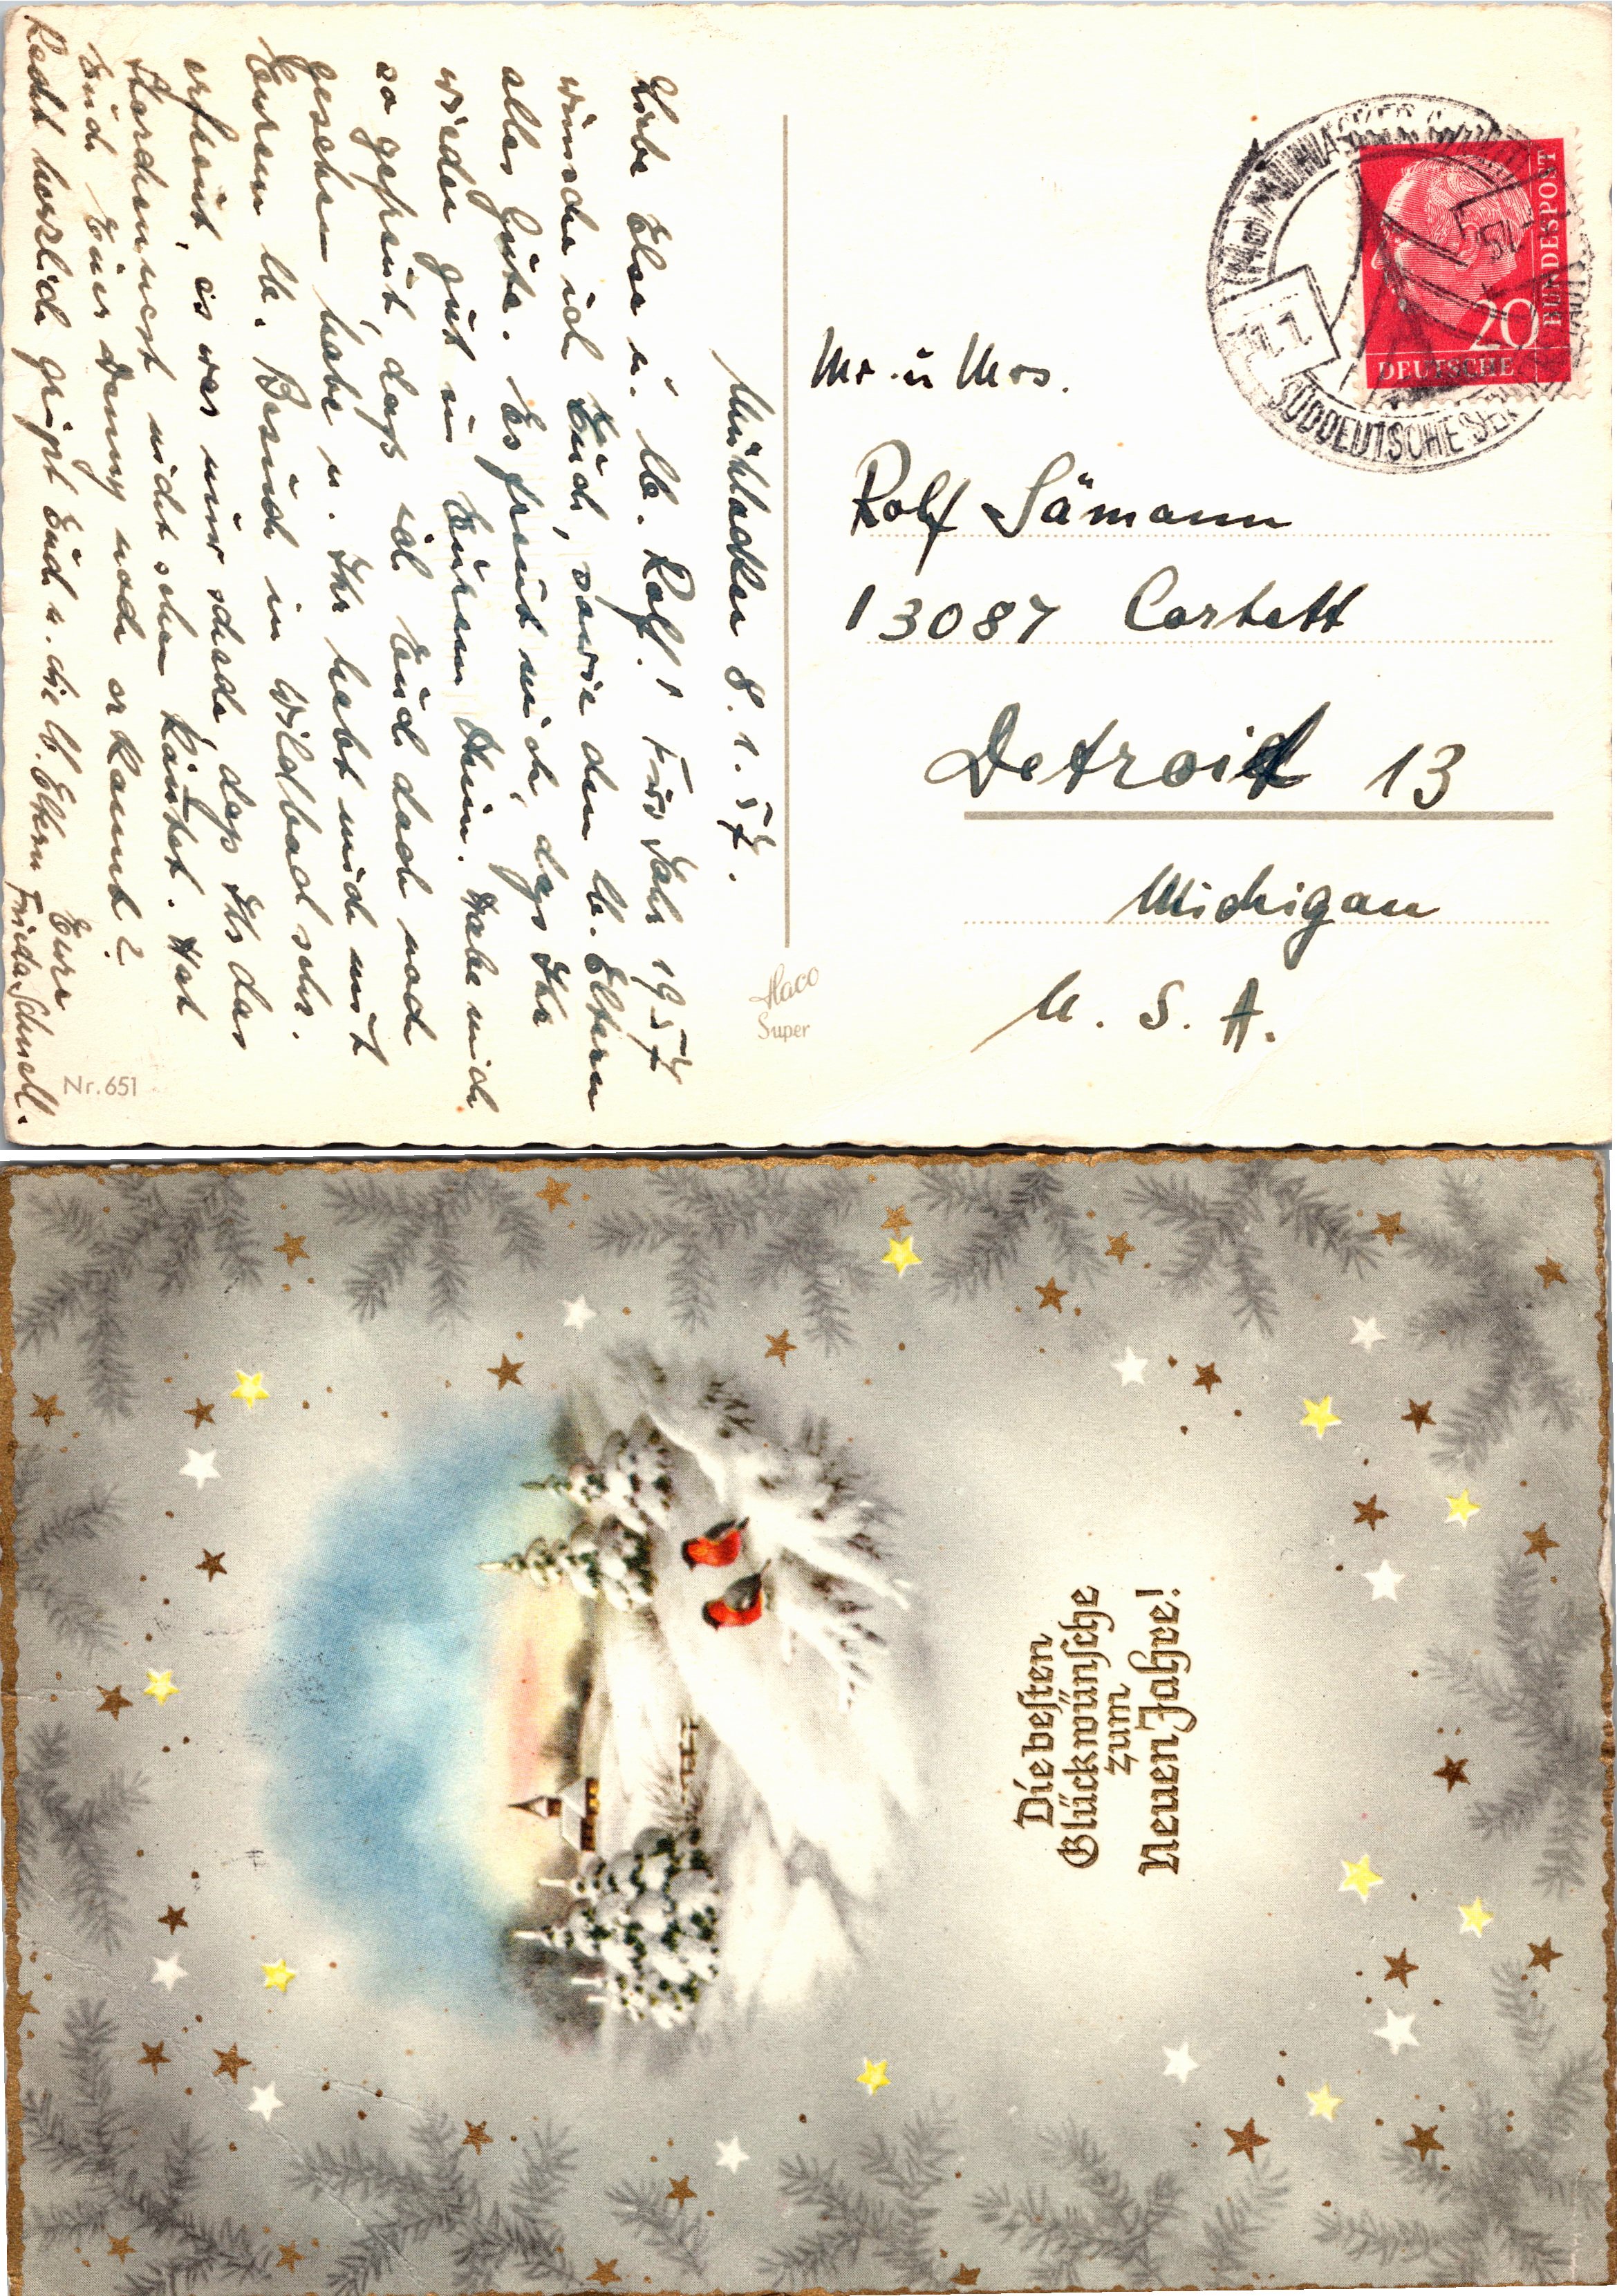 Mühlacker 8. 1. 57.
Liebe Elsa u. lb. Rolf! Fürs Jahr 1957
wünsche ich Euch, sowie den lb. Eltern
alles Gute. Es freut mich, dass Ihr
wieder gut in Eurem Heim. Habe mich
so gefreut, dass ich Euch doch noch
gesehen habe u. Ihr habt mich mit
Eurem lb. Besuch in Wildbad sehr
erfreut, es war nur schade, dass Ihr das
nicht sehen konntet. Hat
Euch Euer Danny noch erkannt?
Recht herzlich grüßt Euch u. die lb. Eltern Eure
Frida Schnell.
Nr. 651
Haco
Super
MÜHLACKER
SÜDDEUTSCHE
DEUTSCHE
BUNDESPOST
20
Mr. u Mrs.
Rolf Sämann
13087 Corbett
Detroit 13
Michigan
U. S. A.
Die besten
Glückwünsche
zum
Neuen Jahre!